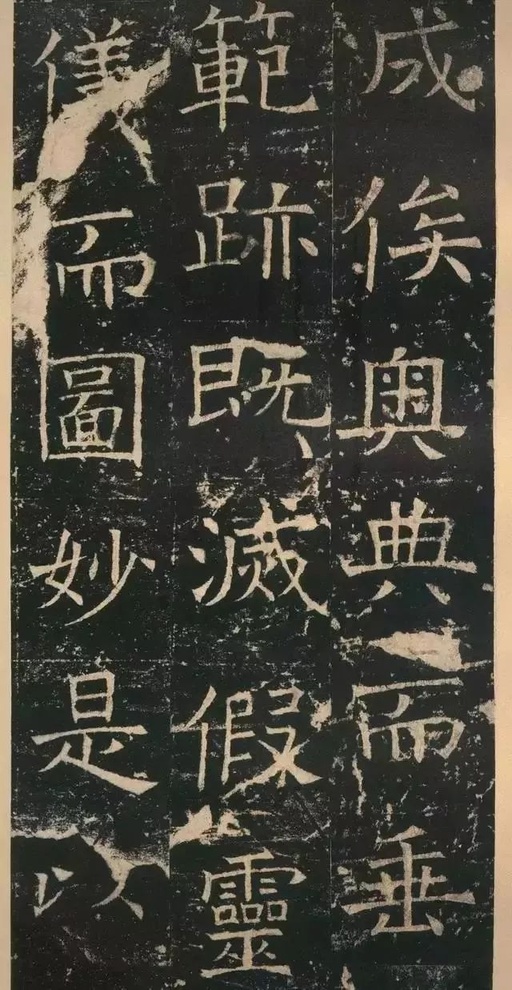 咸俟奥典而垂
範跡既滅假靈
儀而圖妙是以